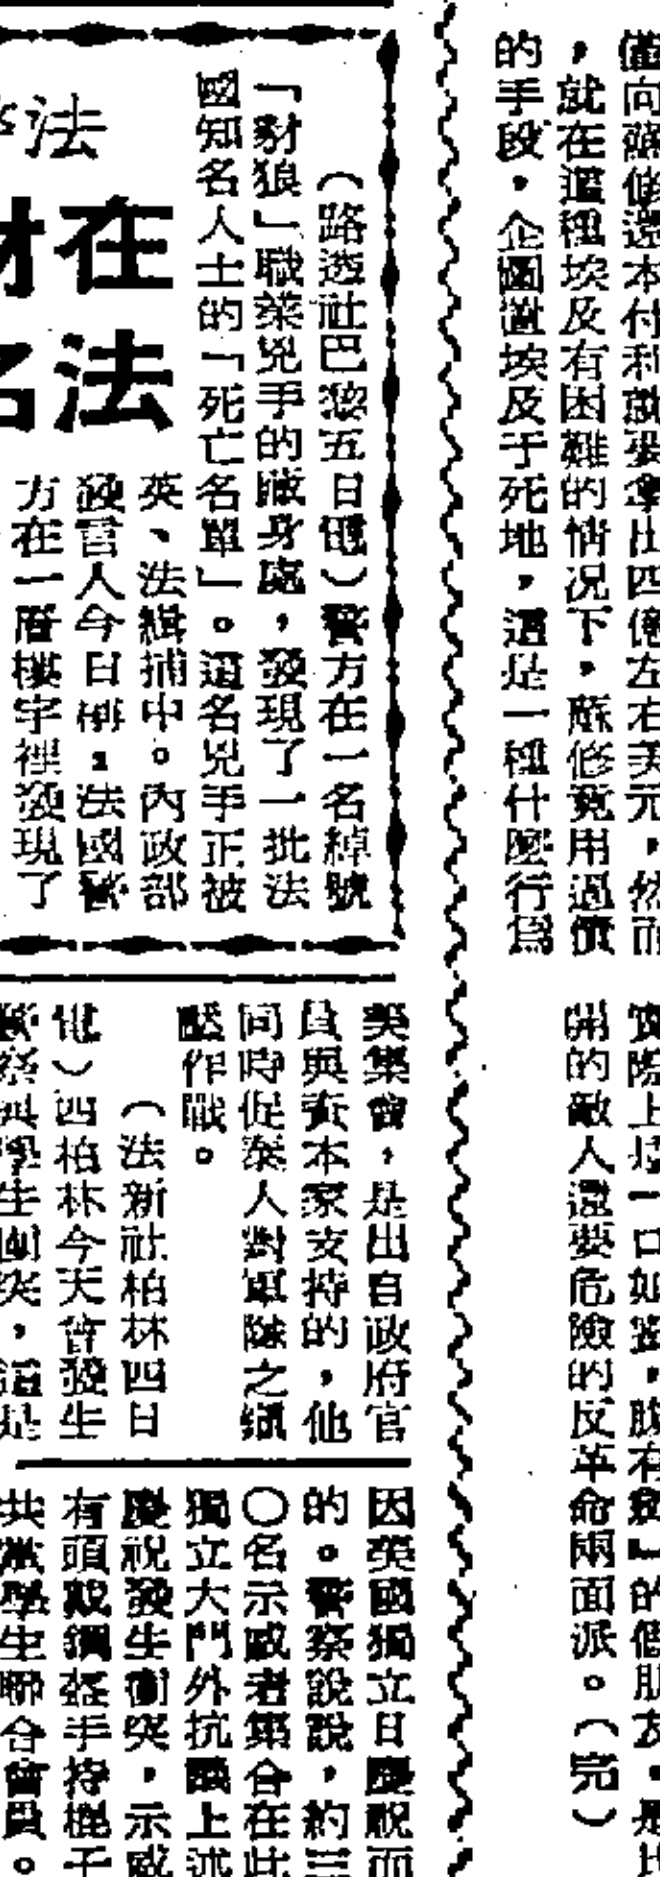 僅向蘇修還本付利就要拿出四億左右美元，然而
，就在這種埃及有困難的情況下，蘇修竟用逼債
的手段，企圖置埃及于死地，這是一種什麼行爲
實際上是一口如蜜，腹有劍」的假朋友，是比
開的敵人還要危險的反革命兩面派。（完）
法
在
法
（路透社巴黎五日電）警方在一名綽號
「豺狼」職業兇手的藏身處，發現了一批法
國知名人士的「死亡名單」。這名兇手正被
英、法緝捕中。內政部
發言人今日稱：法國警
方在一層樓宇裡發現了
美集會，是出自政府官
員與資本家支持的，他
同時促泰人對軍隊之鎮
壓作戰。
（法新社柏林四日
電）西柏林今天曾發生
警察與學生衝突，這是
因美國獨立日慶祝而
的。警察說說，約三
〇名示威者集合在此
獨立大門外抗議上述
慶祝發生衝突，示威
有頭戴鋼盔手持棍子
共黨學生聯合會員。